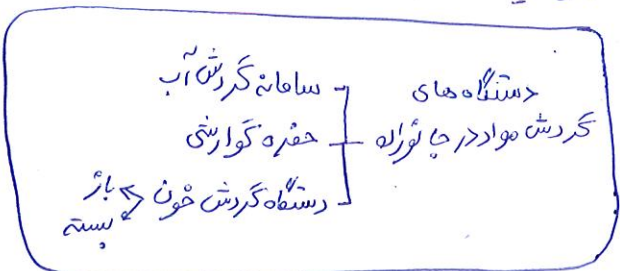 دستگاه های
گردش مواد در جانوران
سامانه گردش آب
حفره گوارشی
دستگاه گردش خون
باز
بسته